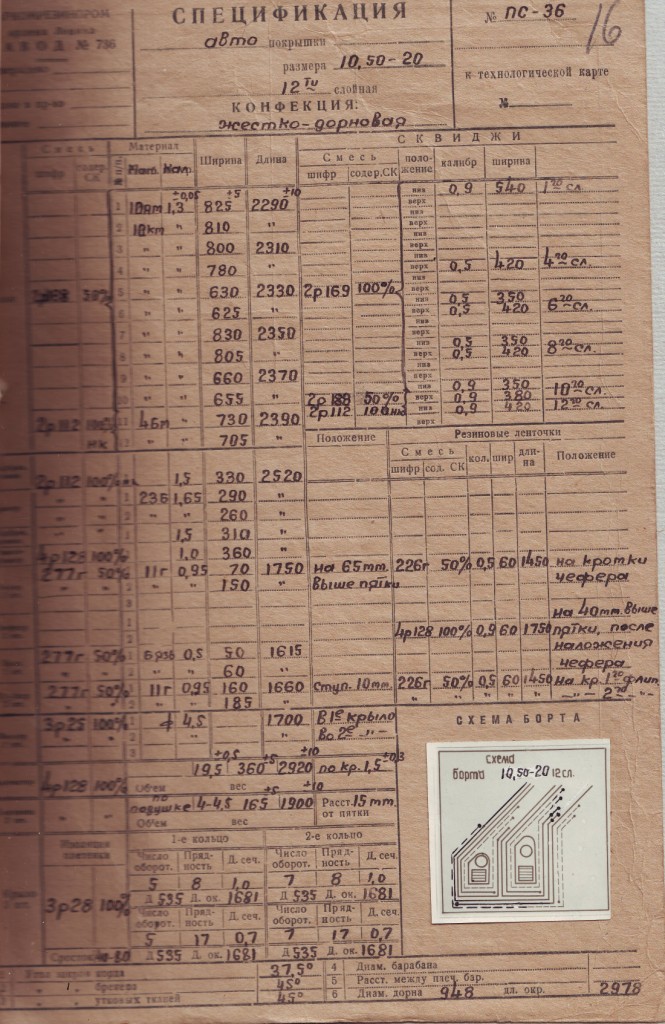 СПЕЦИФИКАЦИЯ
авто покрышки
размера 10,50-20
12ти слойная
КОНФЕКЦИЯ:
жестко-дорновая
№ ПС-36
16
к технологической карте
№
ЗАВОД № 736
Смесь Материал Ширина Длина
СКВИДЖИ
Смесь положение калибр ширина
шифр содер. СК
±0,05 ±5 ±10
1 1,3 825 2290 низ 0,9 540 1го сл.
верх
2 " 810 " низ
верх
3 " " 800 2310 низ
верх
4 " " 780 низ
верх 0,5 420 4го сл.
5 " " 630 2330 2р169 100% низ
верх
6 " " 625 " низ 0,5 350
верх 0,5 420 6го сл.
7 " " 830 2350 низ
верх
8 " " 805 " низ 0,5 350
верх 0,5 420 8го сл.
9 " " 660 2370 низ
верх
10 " " 655 " 2р189 50% низ 0,9 350 10го сл.
верх 0,9 380
11 730 2390 2р112 100 низ 0,9 420 12го сл.
верх
12 " " 705 "
Положение
Резиновые ленточки
Смесь кол. шир длина Положение
шифр сол. СК
2р112 100% 1,5 330 2520
1 23Б 1,65 290 "
" " 260 "
1,5 310
4р128 100% 1.0 360 "
277г 50% 11г 0,95 70 1750 на 65mm. 226г 50% 0,5 60 1450 на кромки
" " 150 " выше пятки чефера
на 40mm. выше
4р128 100% 0,9 60 1750 пятки, после
наложения
чефера
277г 50% 0,5 50 1615
" " 60 "
277г 50% 11г 0,95 160 1660 Ступ. 10mm. 226г 50% 0,5 60 1450 на кр. 1го флип.
" " 185 " " " " " " -"- 2го -"-
3р25 100% 4,5 1700 В 1е крыло
во 2е -"-
±0,5 ±5 ±10
4р128 100% 19,5 360 2920 по кр. 1,5 ±0,3
Объем вес ±5 ±10
по подушке 4-4,5 165 1900 Расст. 15mm.
от пятки
Объем вес
СХЕМА БОРТА
Схема
борта 10,50-20 12 сл.
Изоляция
плетенка
3р28 100%
1-е кольцо 2-е кольцо
Число оборот. Прядность Д. сеч. Число оборот. Прядность Д. сеч.
5 8 1,0 7 8 1,0
Д 535 Д. ок. 1681 Д 535 Д. ок. 1681
Число оборот. Прядность Д. сеч. Число оборот. Прядность Д. сеч.
5 17 0,7 7 17 0,7
Д 535 Д. ок. 1681 Д 535 Д. ок. 1681
Угол закроя корда 37,5° 4 Диам. барабана
" " брекера 45° 5 Расст. между плеч. бар.
" " утковых тканей 45° 6 Диам. дорна 948 дл. окр. 2978